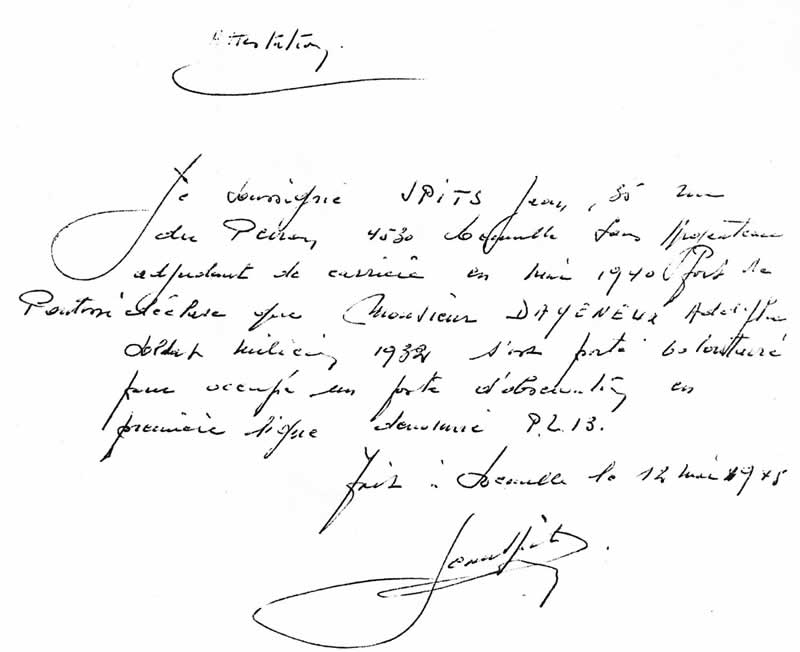 Attestation.
Je soussigné SPITS Jean, 35 rue
du Perron 4530
adjudant de carrière en mai 1940 Fort de
déclare que Monsieur DAYENEUX Adolphe
soldat milicien 1932 s'est porté volontaire
pour occupé un poste d'observation en
première ligne dénommé P.L.13.
Fait à le 12 mai
Jean Spits